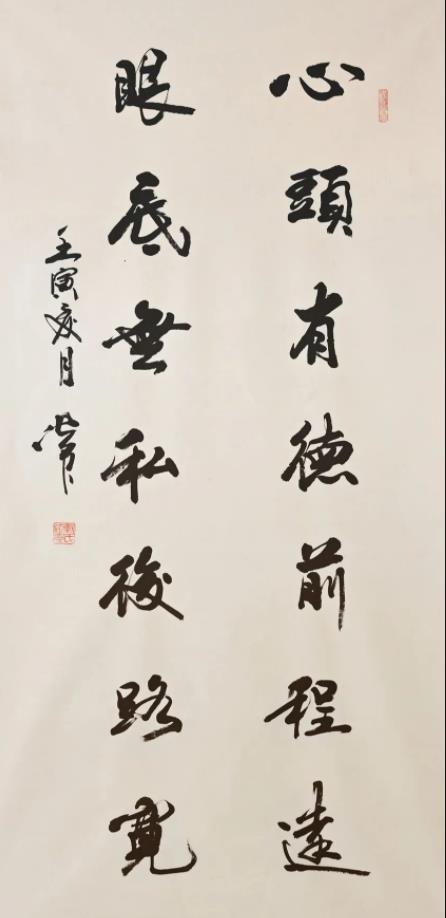 心頭有德前程遠
眼底無私後路寬
壬寅夜月